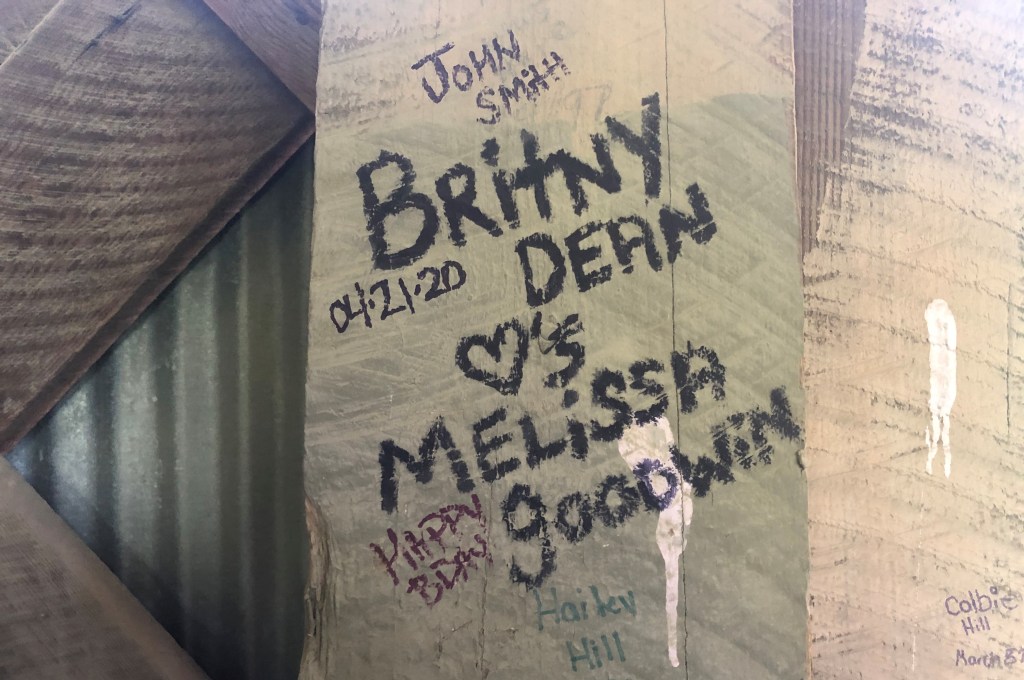 JOHN
SMITH
BRITNY
DEAN
04.21.20
♡'S
MELISSA
GOODWIN
HAPPY
BDAY
Hailey
Hill
Colbie
Hill
March